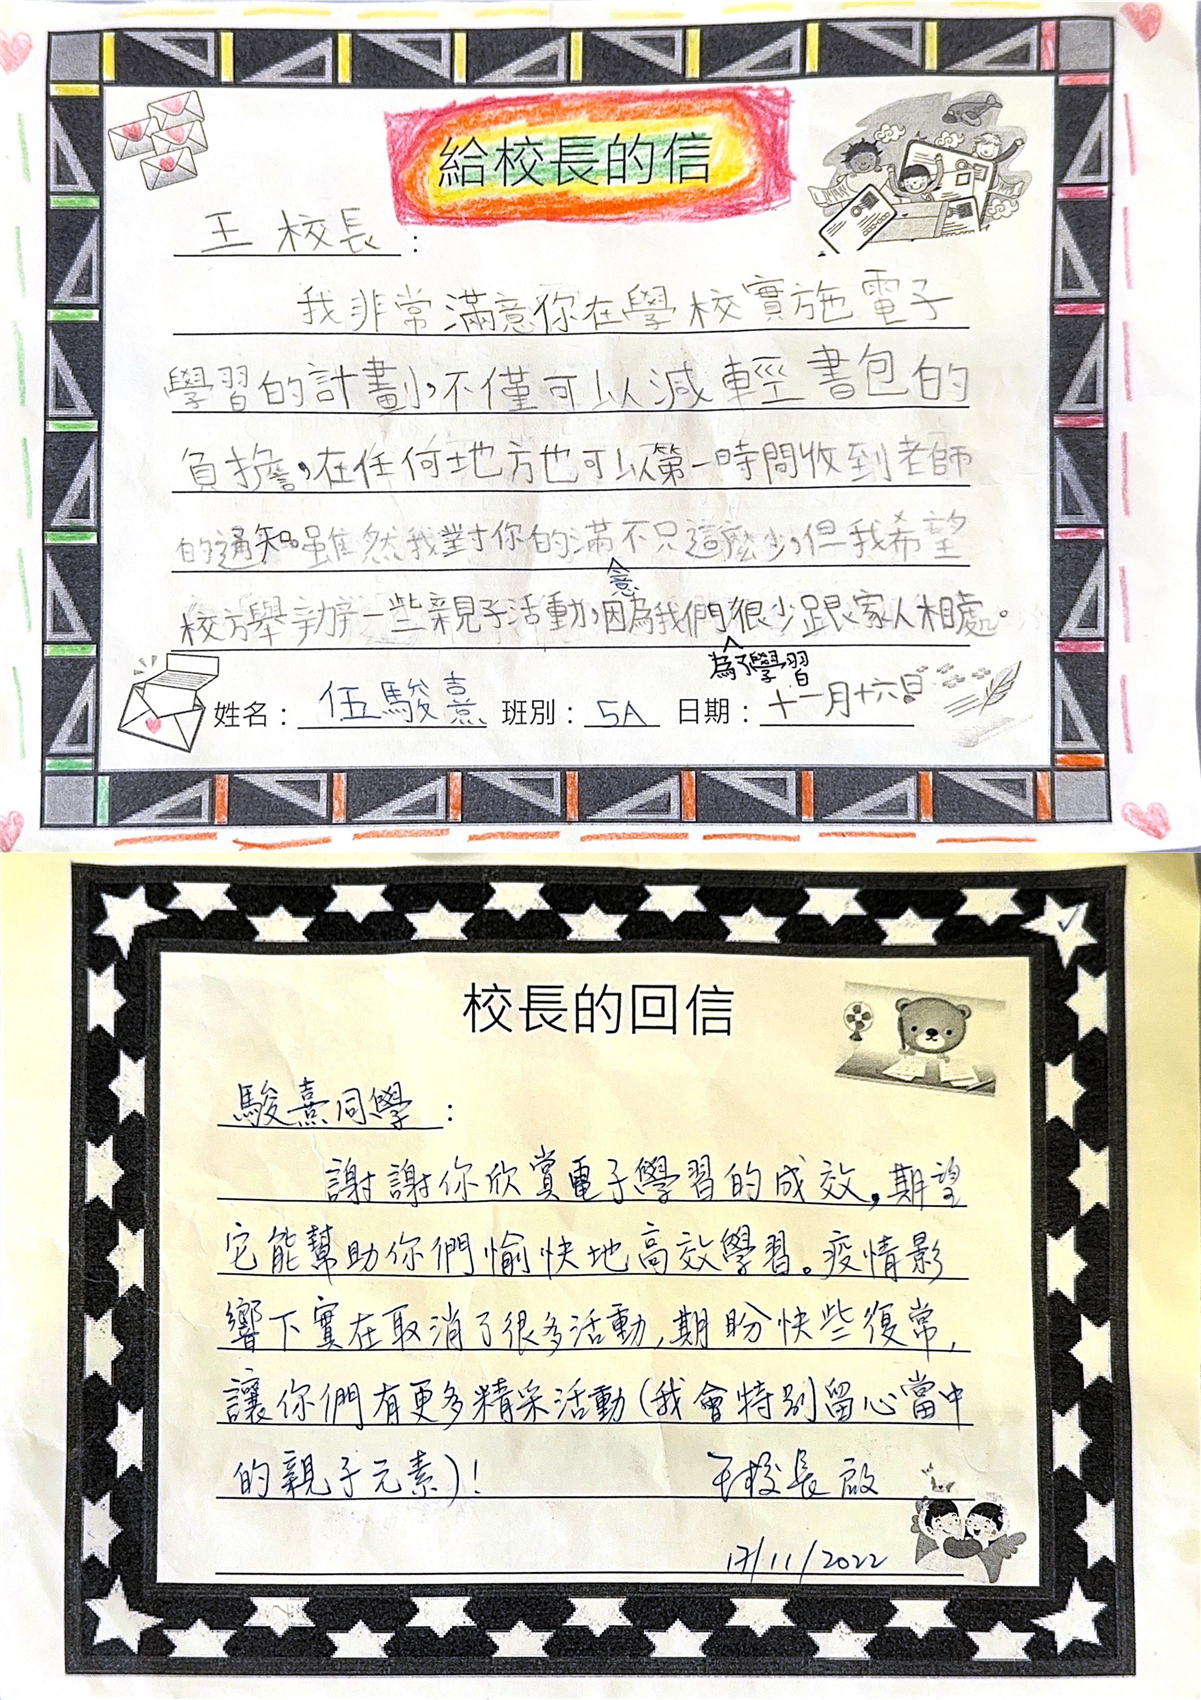 給校長的信
王校長：
我非常滿意你在學校實施電子
學習的計劃，不僅可以減輕書包的
負擔，在任何地方也可以第一時間收到老師
的通知。雖然我對你的滿意不只這麼少，但我希望
校方舉辦一些親子活動，因為我們為了學習很少跟家人相處。
姓名：伍駿熹 班別：5A 日期：十一月十六日
校長的回信
駿熹同學：
謝謝你欣賞電子學習的成效，期望
它能幫助你們愉快地高效學習。疫情影
響下實在取消了很多活動，期盼快些復常，
讓你們有更多精采活動（我會特別留心當中
的親子元素）！ 王校長啟
17/11/2022